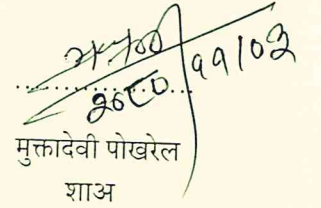 २०८०/११/०३
मुक्तादेवी पोखरेल
शाअ